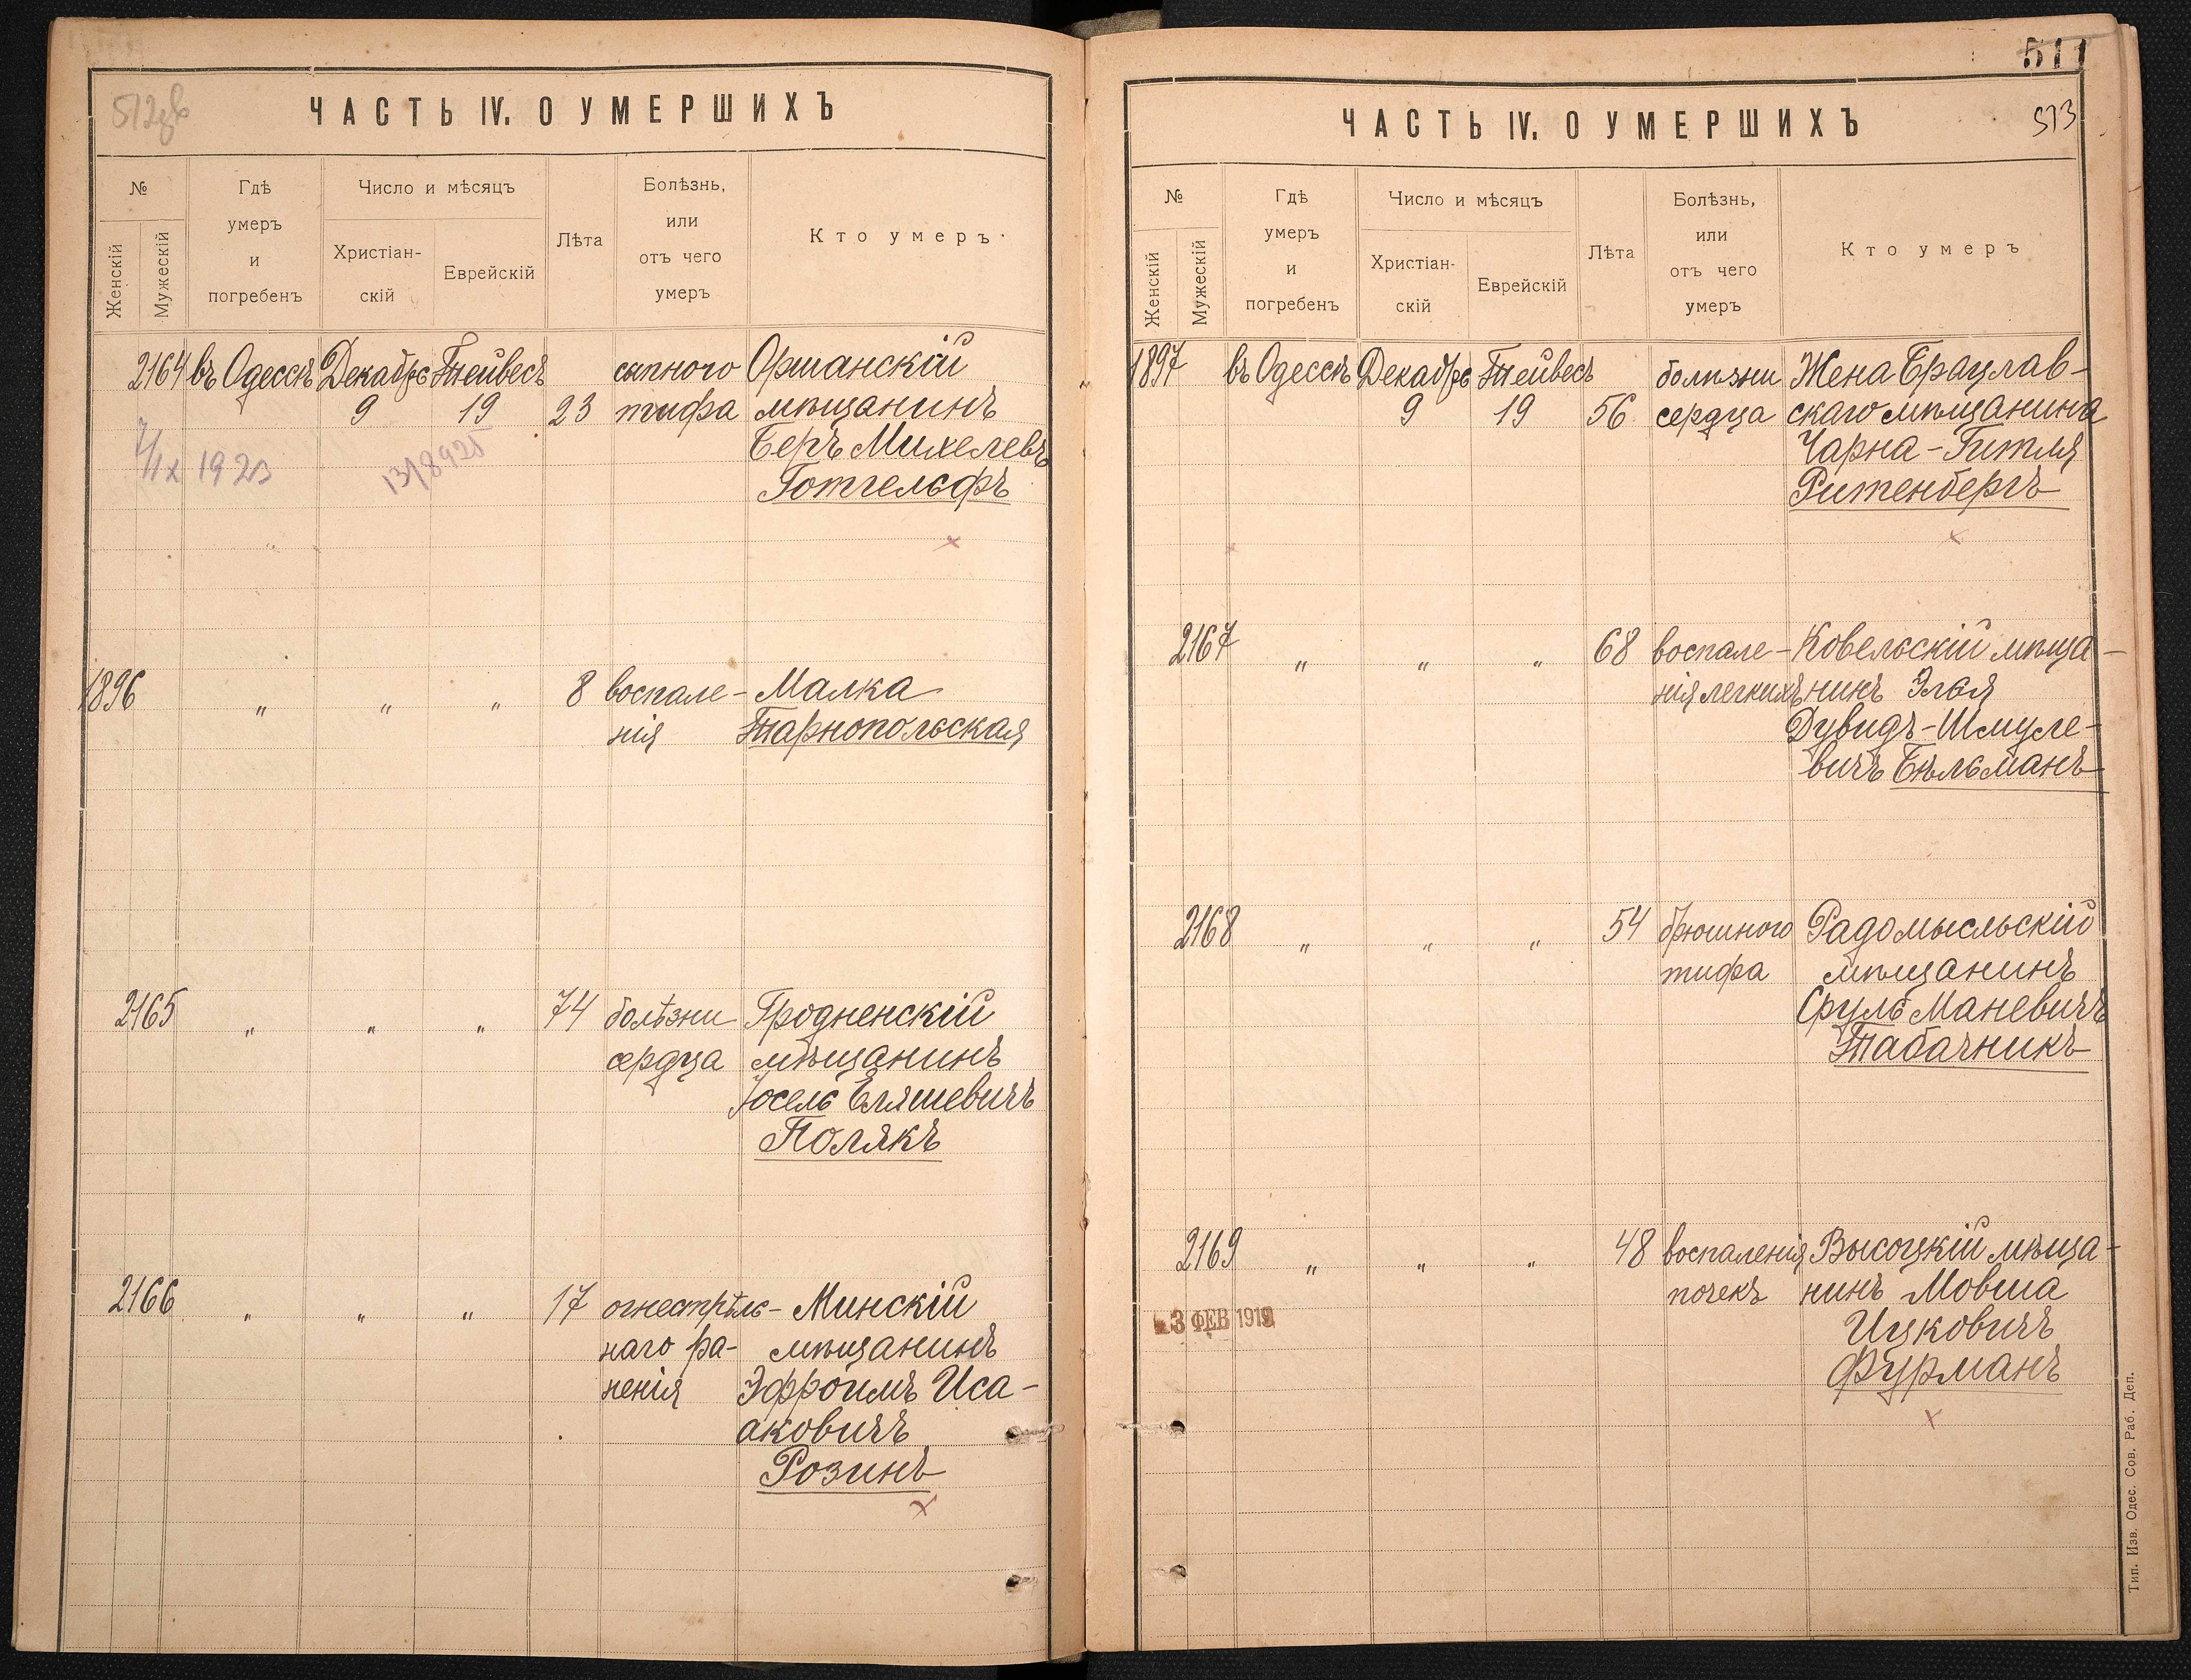 512об
ЧАСТЬ IV. О УМЕРШИХЪ
№
Женскій
Мужескій
Гдѣ
умеръ
и
погребенъ
Число и мѣсяцъ
Христіан-
скій
Еврейскій
Лѣта
Болѣзнь,
или
отъ чего
умеръ
Кто умеръ.
2164 въ Одессѣ Декабрь Тейвесъ сыпного Оршанскій
9 19 23 тифа мѣщанинъ
Беръ Михелевъ
Готгельфъ
7/IX 1923
13/8 925
1896 " " " 8 воспале- Малка
нія Тарнопольская
2165 " " " 74 болѣзни Гродненскій
сердца мѣщанинъ
Іосель Еляшевичъ
Полякъ
2166 " " " 17 огнестрѣль- Минскій
наго ра- мѣщанинъ
ненія Эфроимъ Иса-
аковичъ
Розинъ
511
513
ЧАСТЬ IV. О УМЕРШИХЪ
№
Женскій
Мужескій
Гдѣ
умеръ
и
погребенъ
Число и мѣсяцъ
Христіан-
скій
Еврейскій
Лѣта
Болѣзнь,
или
отъ чего
умеръ
Кто умеръ
1897 въ Одессѣ Декабрь Тейвесъ болѣзни Жена Брацлав-
9 19 56 сердца скаго мѣщанина
Чарна-Гитля
Ритенбергъ
2167 " " " 68 воспале- Ковельскій мѣща-
нія легкихъ нинъ Эля
Дувидъ-Шмуле-
вичъ Бѣльманъ
2168 " " " 54 брюшного Радомысльскій
тифа мѣщанинъ
Сруль Маневичъ
Табачникъ
2169 " " " 48 воспаленія Высоцкій мѣща-
почекъ нинъ Мовша
Ицковичъ
Фурманъ
3 ФЕВ 1919
Тип. Изв. Одес. Сов. Раб. Деп.